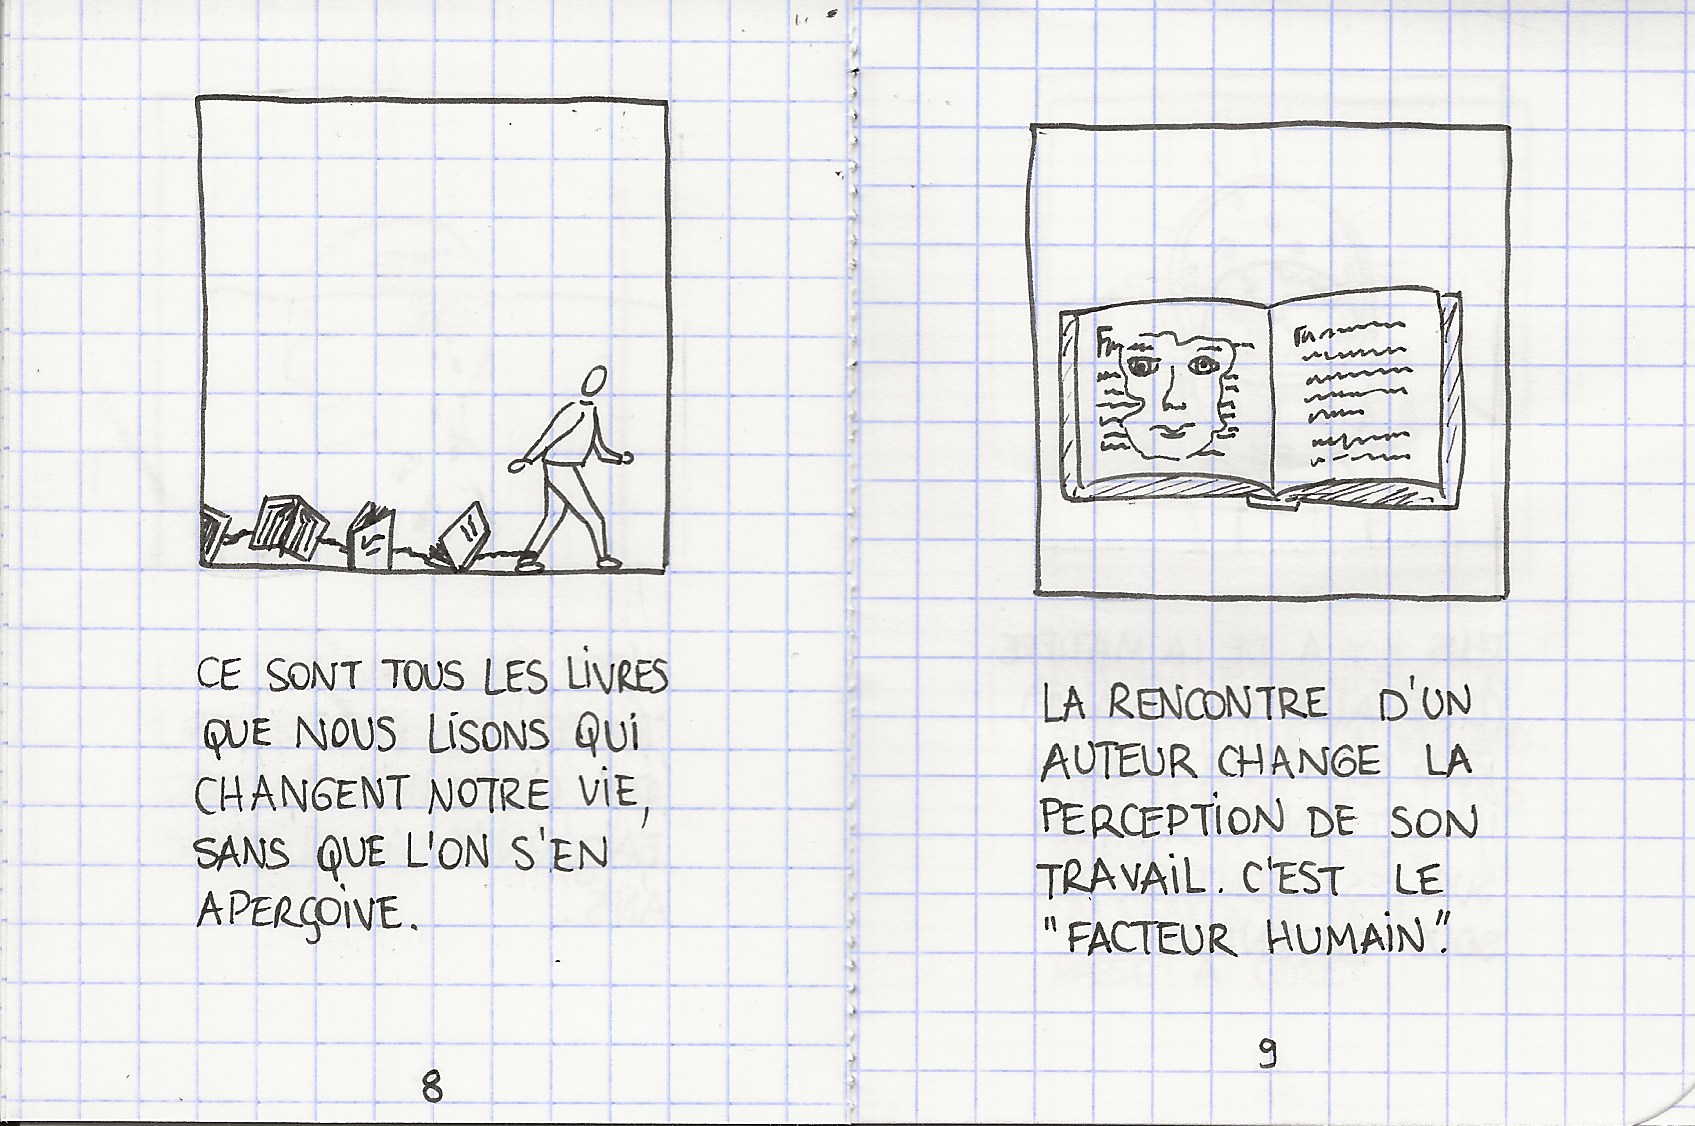 CE SONT TOUS LES LIVRES
QUE NOUS LISONS QUI
CHANGENT NOTRE VIE,
SANS QUE L'ON S'EN
APERÇOIVE.
8
LA RENCONTRE D'UN
AUTEUR CHANGE LA
PERCEPTION DE SON
TRAVAIL. C'EST LE
"FACTEUR HUMAIN".
9